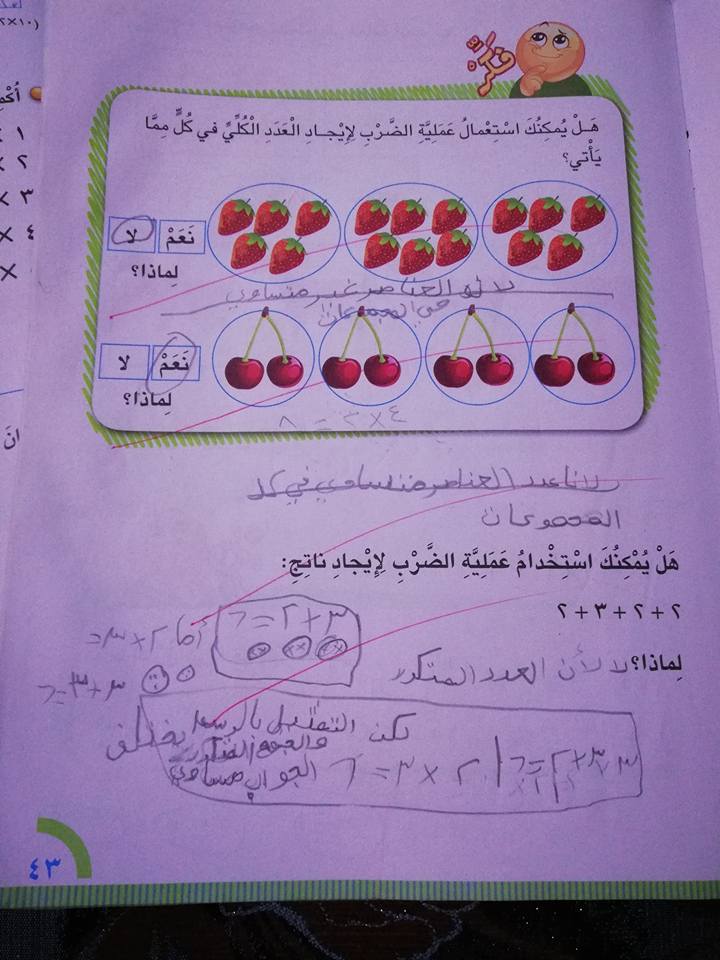 ٢×١٠)
أُكْمِ
١
٢
٣
×
٤
×
انَ
فَكِّرْ
هَـلْ يُمكِنُكَ اسْتِعْمالُ عَمَلِيَّةِ الضَّرْبِ لِإيْجـادِ الْعَدَدِ الْكُلِّيِّ في كُلٍّ مِمَّا
يَأْتي؟
نَعَمْ لا
لِماذا؟
لا لأن العناصر غير متساوي
في المجموعات
نَعَمْ لا
لِماذا؟
٤×٢=٨
لانا عدد العناصر متساوي في كل
المجموعات
هَلْ يُمْكِنُكَ اسْتِخْدامُ عَمَلِيَّةِ الضَّرْبِ لِإيْجادِ ناتِجِ:
٢+٢+٣+٢
لِماذا؟ لا لأن العدد المتكرر
أما ٢×٣=
٣+٣=٦
لكن التمثيل بالرسم
يختلف
الجواب متساوي
٢×٣=٦
٤٣